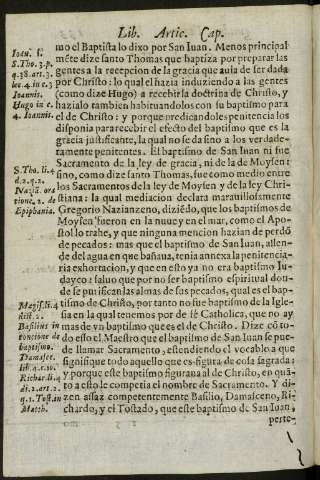 Lib. Artic. Cap.
Ioan. 1.
S. Tho. 3. p.
q. 38. art. 3.
Ioannis.
Hugo in c.
4. Ioannis.
S. Tho. li. 4
d. 2. q. 2.
Naziā. ora
tione. 2. de
Epiphania.
Magist. li. 4
dist. 2.
Basilius in
concione de
baptismo.
Damasce.
lib. 4. c. 10.
Richar. li. 4
di. 2. art. 2.
q. 1. Tostan
Matth.
mo el Baptista lo dixo por San Iuan. Menos principal
mẽte dize santo Thomas que baptiza por preparar las
gentes a la recepcion de la gracia que auia de ser dada
por Christo: lo qual el hazia induziendo a las gentes
(como dize Hugo) a recebir la doctrina de Christo, y
hazialo tambien habituandolos con su baptismo para
el de Christo: y porque predicandoles penitencia los
disponia para recebir el efecto del baptismo que es la
gracia justificante, la qual no se da sino a los verdade-
ramente penitentes. El baptismo de San Iuan ni fue
Sacramento de la ley de gracia, ni de la de Moysen:
sino, como dize santo Thomas, fue como medio entre
los Sacramentos de la ley de Moysen y de la ley Chri-
stiana: la qual mediacion declara marauillosamente
Gregorio Nazianzeno, diziẽdo, que los baptismos de
Moysen fueron en la nuue y en el mar, como el Apo-
stol lo trahe, y que ninguna mencion hazian de perdõ
de pecados: mas que el baptismo de San Iuan, allen-
de del agua en que bañaua, tenia annexa la penitencia
ria exhortacion, y que en esto ya no era baptismo Iu-
dayco: saluo que por no ser baptismo espiritual don-
de se purifican las almas de sus pecados, qual es el bap-
tismo de Christo, por tanto no fue baptismo de la Igle-
sia en la qual tenemos por de fé Catholica, que no ay
mas de vn baptismo que es el de Christo. Dize cõ to-
do esso el Maestro que el baptismo de San Iuan se pue-
de llamar Sacramento, estendiendo el vocablo a que
signifique todo aquello que es figura de cosa sagrada:
y porque este baptismo figuraua al de Christo, en quã-
to a esto le competia el nombre de Sacramento. Y di-
zen assaz competentemente Basilio, Damasceno, Ri-
chardo, y el Tostado, que este baptismo de San Iuan,
perte-